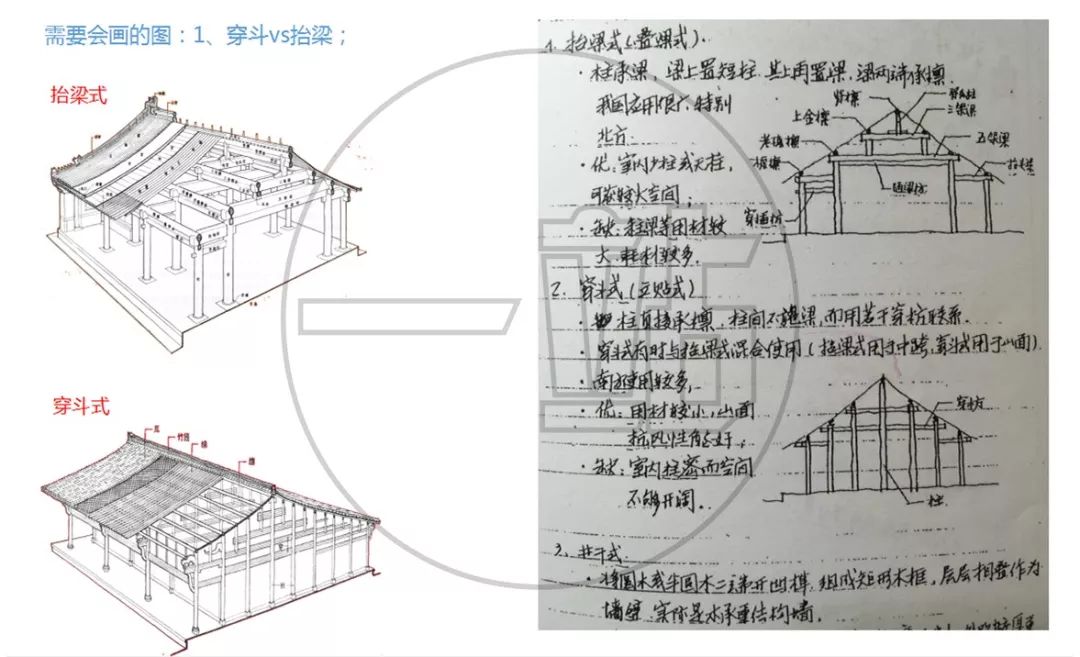 需要会画的图：1、穿斗vs抬梁；
抬梁式
穿斗式
瓦
竹篾
椽
檩
1. 抬梁式（叠梁式）.
·柱承梁，梁上置短柱，其上再置梁，梁两端承檩.
我国应用很广，特别
北方.
·优：室内少柱或无柱，
可获较大空间；
·缺：柱梁等用材较
大，耗材较多.
脊檩
上金檩
老檐檩
三架梁
五架梁
穿插枋
2. 穿斗式（立贴式）
·柱直接承檩，柱间不施梁，而用若干穿枋联系.
·穿斗式有时与抬梁式混合使用（抬梁式用于中跨，穿斗式用于山面）.
·南方使用较多，
·优：用材较小，山面
抗风性能好；
·缺：室内柱密而空间
不够开阔.
穿枋
柱
3. 井干式.
·将圆木或半圆木二端开凹榫，组成矩形木框，层层相叠作为
墙壁.实际是木承重结构墙.
一站